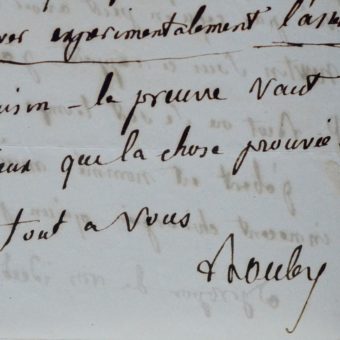 ver experimentalement l'asu
uism – la preuve vaut
eux que la chose prouvée
tout a vous